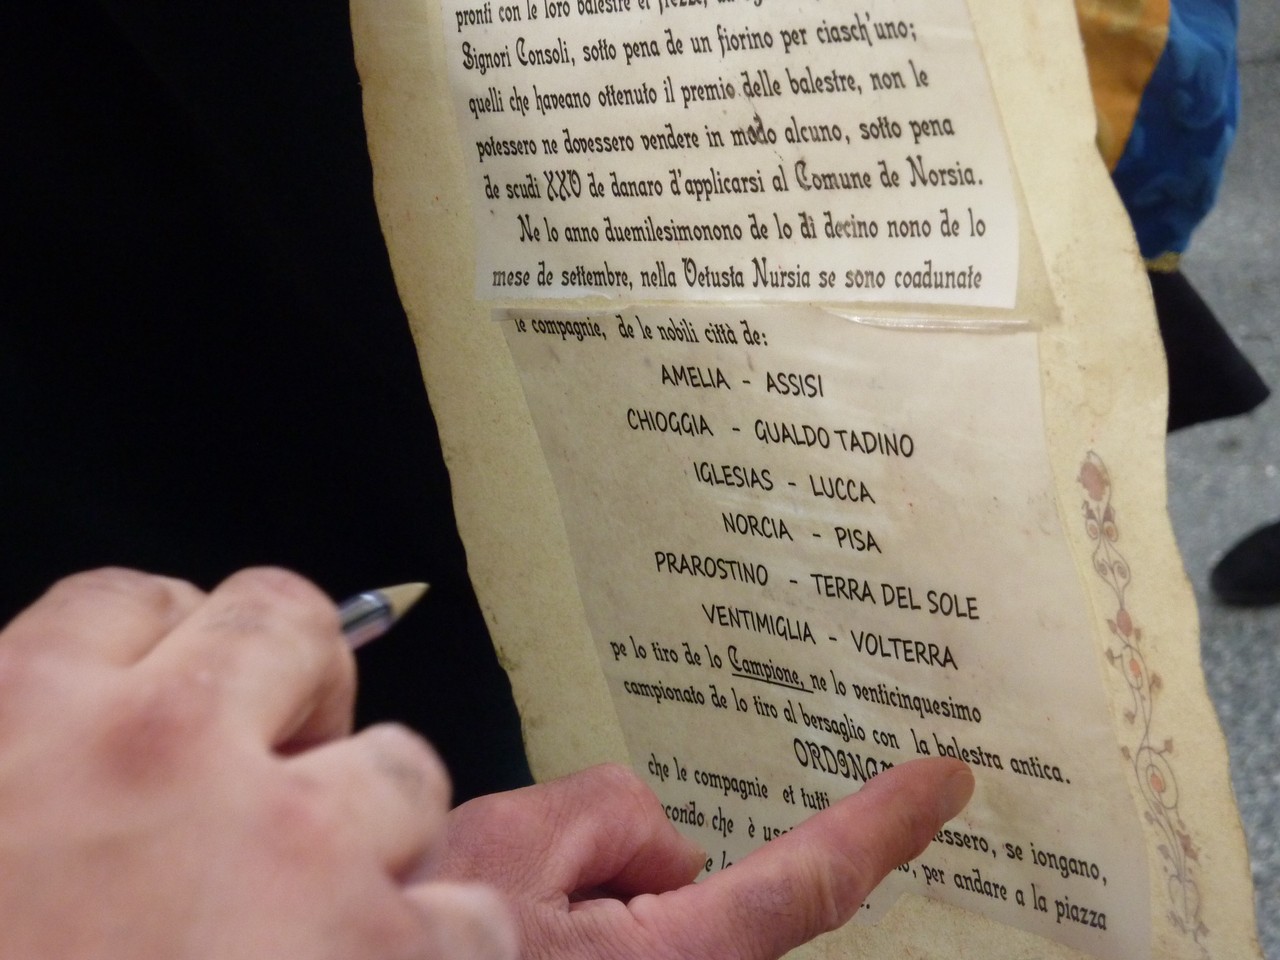 pronti con le loro balestre et frezze,
Signori Consoli, sotto pena de un fiorino per ciasch'uno;
quelli che haveano ottenuto il premio delle balestre, non le
potessero ne dovessero vendere in modo alcuno, sotto pena
de scudi XXV de danaro d'applicarsi al Comune de Norsia.
Ne lo anno duemilesimonono de lo dì decino nono de lo
mese de settembre, nella Vetusta Nursia se sono coadunate
le compagnie, de le nobili città de:
AMELIA - ASSISI
CHIOGGIA - GUALDO TADINO
IGLESIAS - LUCCA
NORCIA - PISA
PRAROSTINO - TERRA DEL SOLE
VENTIMIGLIA - VOLTERRA
pe lo tiro de lo Campione, ne lo venticinquesimo
campionato de lo tiro al bersaglio con la balestra antica.
che le compagnie et tutti
che è se iongano,
per andare a la piazza